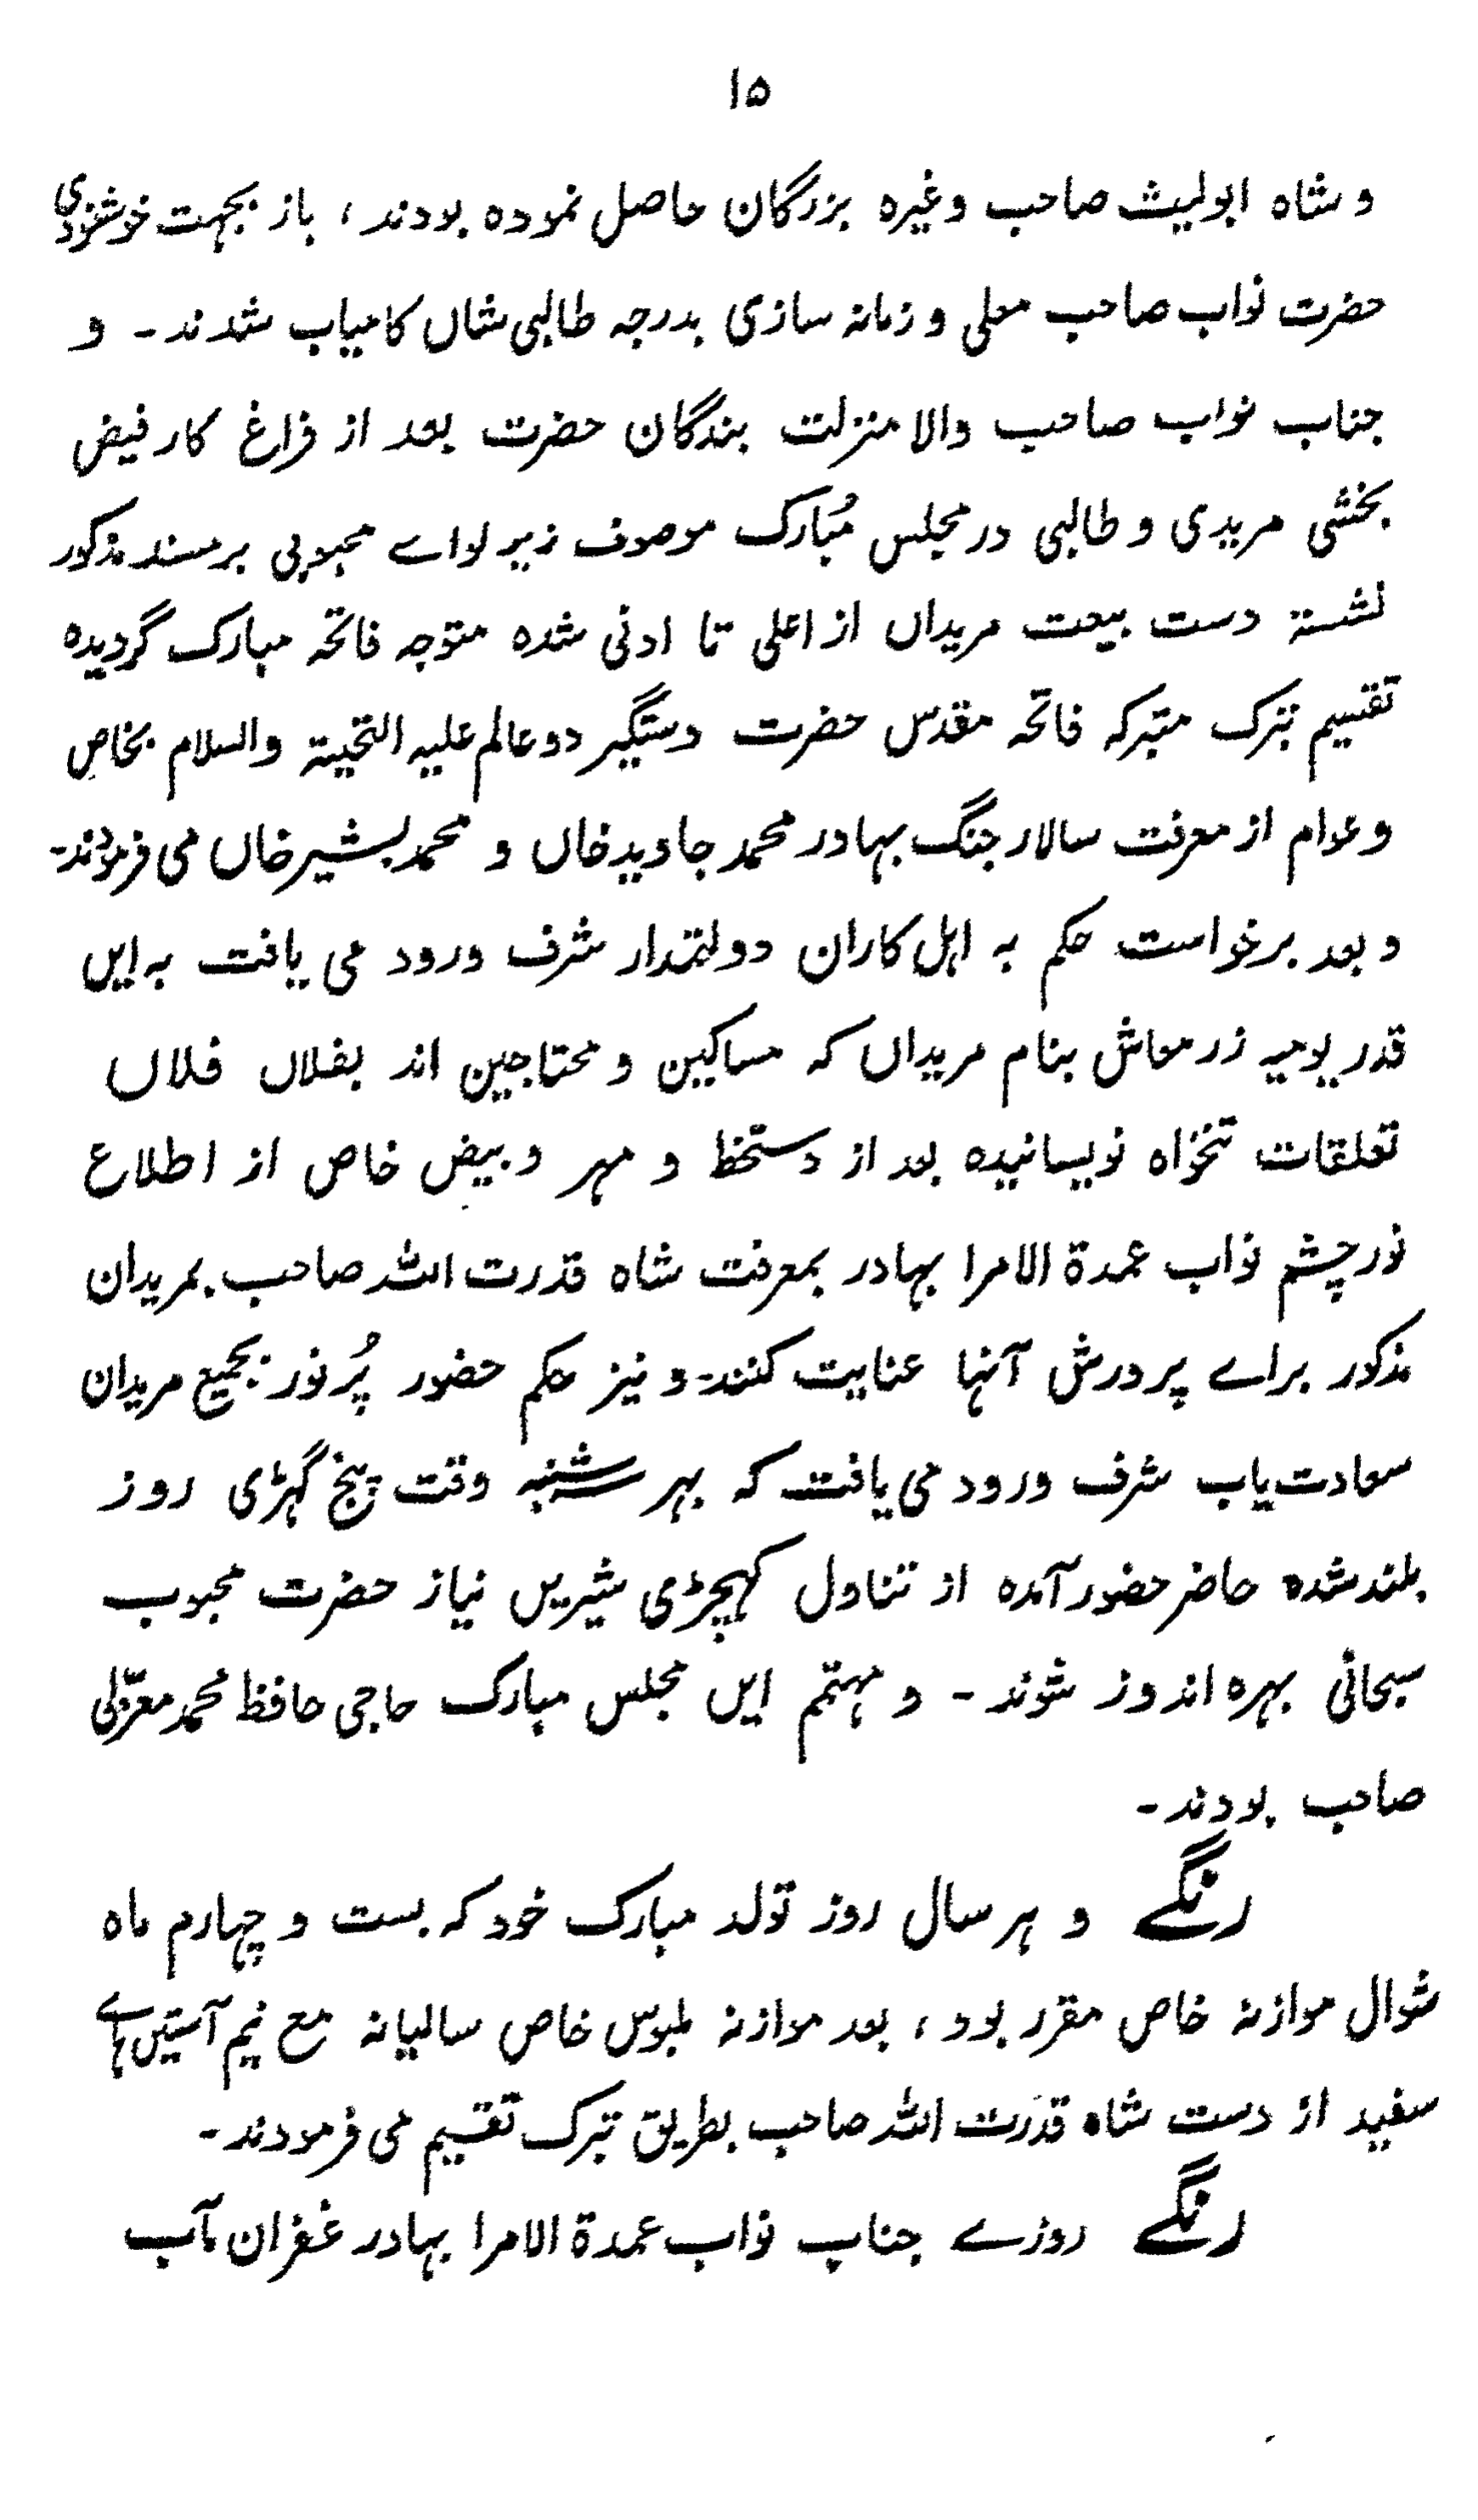 ۱۵
و شاہ ابولیث صاحب وغیرہ بزرگان حاصل نمودہ بودند، باز بجہت خوشنودی
حضرت نواب صاحب معلی و زمانہ سازی بدرجہ طالبی شاں کامیاب شدند۔ و
جناب نواب صاحب والا منزلت بندگان حضرت بعد از فراغ کار فیض
بخشی مریدی و طالبی در مجلس مُبارک موصوف زیر لواے محبوبی بر مسند مذکور
نشستہ دست بیعت مریداں از اعلی تا ادنی شدہ متوجہ فاتحہ مبارک گردیدہ
تقسیم تبرک متبرکہ فاتحہ مقدس حضرت دستگیر دو عالم علیہ التحیتہ والسلام بخاص
و عوام از معرفت سالار جنگ بہادر محمد جاوید خاں و محمد بشیر خاں می فرمودند۔
و بعد برخواست حکم بہ اہل کاران دولتمدار شرف ورود می یافت بہ ایں
قدر یومیہ زر معاش بنام مریداں کہ مساکین و محتاجین اند بفلاں فلاں
تعلقات تنخواہ نویسانیدہ بعد از دستخط و مہر و بیض خاص از اطلاع
نور چشم نواب عمدۃ الامرا بہادر بمعرفت شاہ قدرت اللہ صاحب بمریدان
مذکور براے پرورش آنہا عنایت کنند۔ و نیز حکم حضور پُر نور بجمیع مریدان
سعادت یاب شرف ورود می یافت کہ بہر سہ شنبہ وقت پنج گہڑی روز
بلند شدہ حاضر حضور آمدہ از تناول کہچڑی شیریں نیاز حضرت محبوب
سبحانی بہرہ اندوز شوند۔ و مہتمم ایں مجلس مبارک حاجی حافظ محمد معز علی
صاحب بودند۔
رنگے و ہر سال روز تولد مبارک خود کہ بست و چہارم ماہ
شوال موازنہ خاص مقرر بود، بعد موازنہ ملبوس خاص سالیانہ مع نیم آستیں ہاے
سفید از دست شاہ قدرت اللہ صاحب بطریق تبرک تقسیم می فرمودند۔
رنگے روزے جناب نواب عمدۃ الامرا بہادر غفران مآب